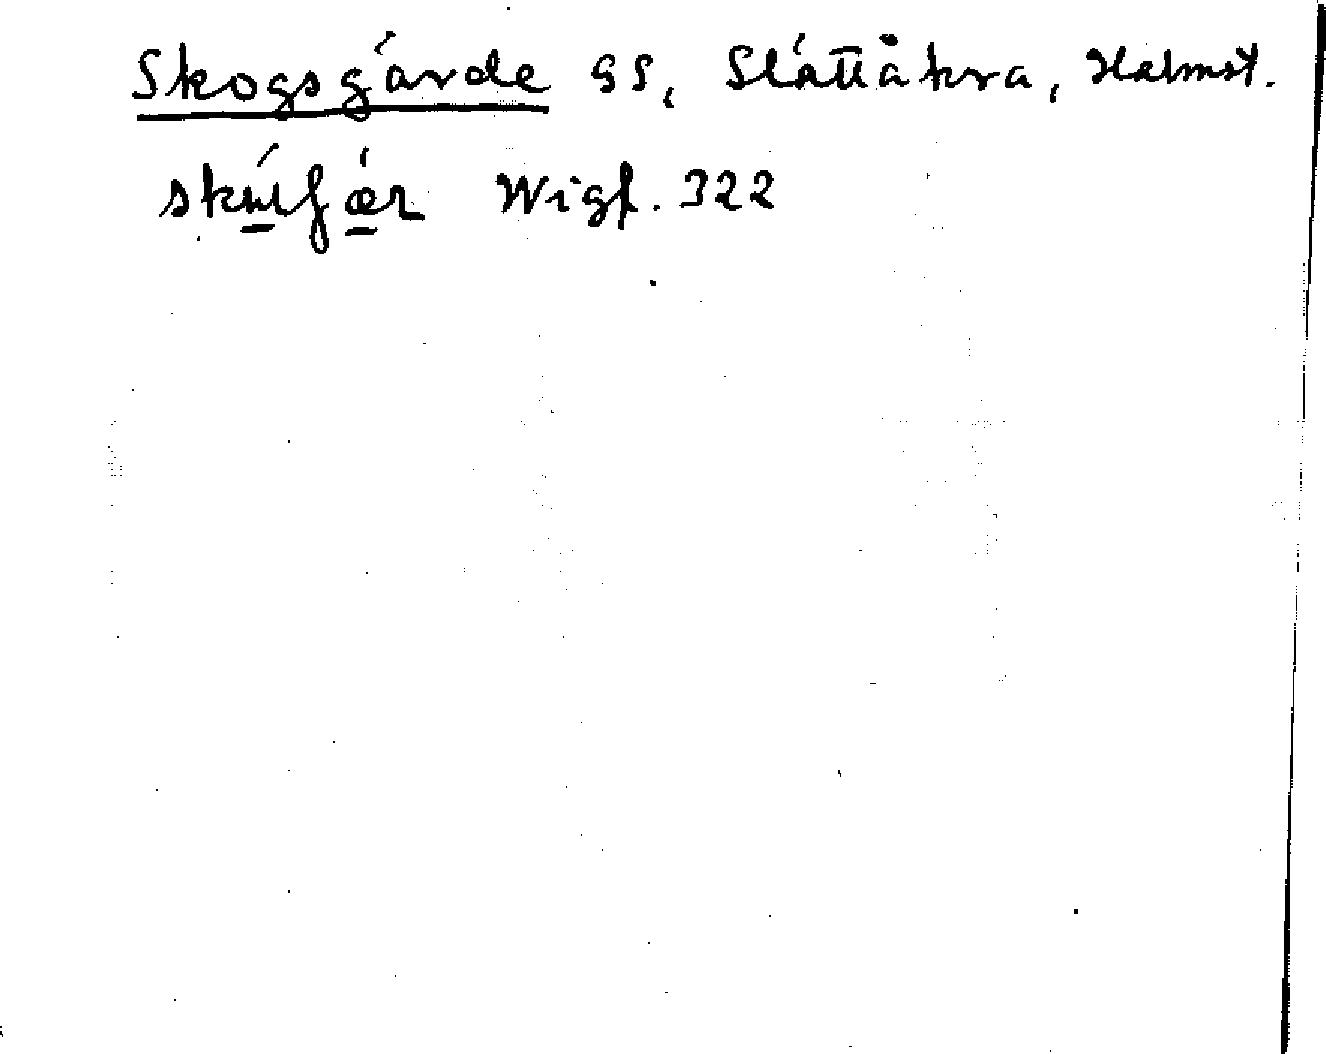 Skogsgärde gs, Slättåkra, Halmst.
Wigf. 322